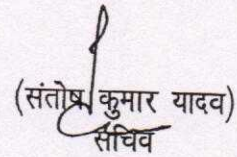 (संतोष कुमार यादव)
सचिव